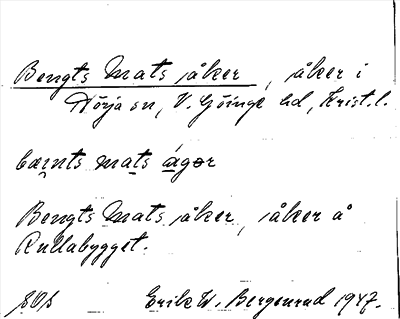 Bengts Mats åker, åker i
Hörja sn, V. Göinge hd, Krist. l.
bæɲts mats ágər
Bengts Mats åker, åker å
Rullabygget.
Erik W. Bergenrad 1947.